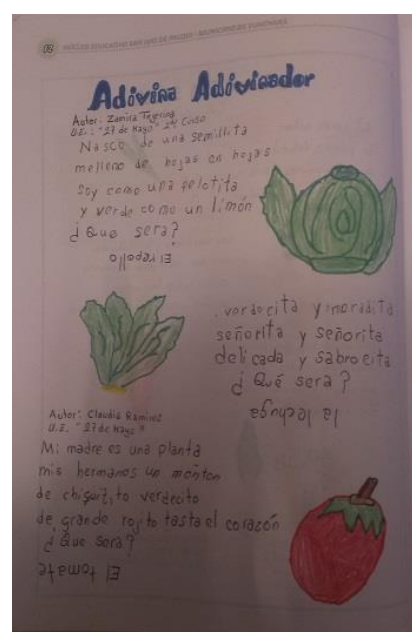 08 NÚCLEO EDUCATIVO SAN
Adivina Adivinador
Autor: Zamira Tejerina
U.E.: "27 de Mayo" Curso
Nasco de una semillita
melleno de hojas en hojas
Soy como una pelotita
y verde como un limón
¿Que sera?
El repollo
verdecita y moradita
señorita y señorita
delicada y sabrocita
¿Qué sera?
la lechuga
Autor: Claudia Ramirez
U.E. "27 de Mayo"
Mi madre es una planta
mis hermanos un montón
de chiquitito verdecito
de grande rojito tasta el corazón
¿Que sera?
El tomate